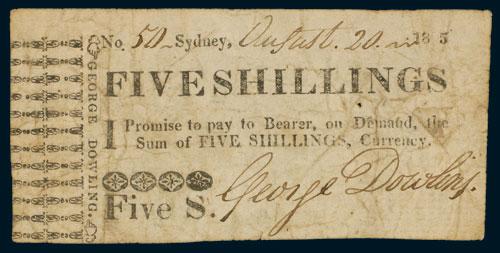 No. 50 Sydney, August. 20. 18 5
FIVE SHILLINGS
I Promise to pay to Bearer, on Demand, the
Sum of FIVE SHILLINGS, Currency.
Five S. George Dowling.
GEORGE DOWLING.